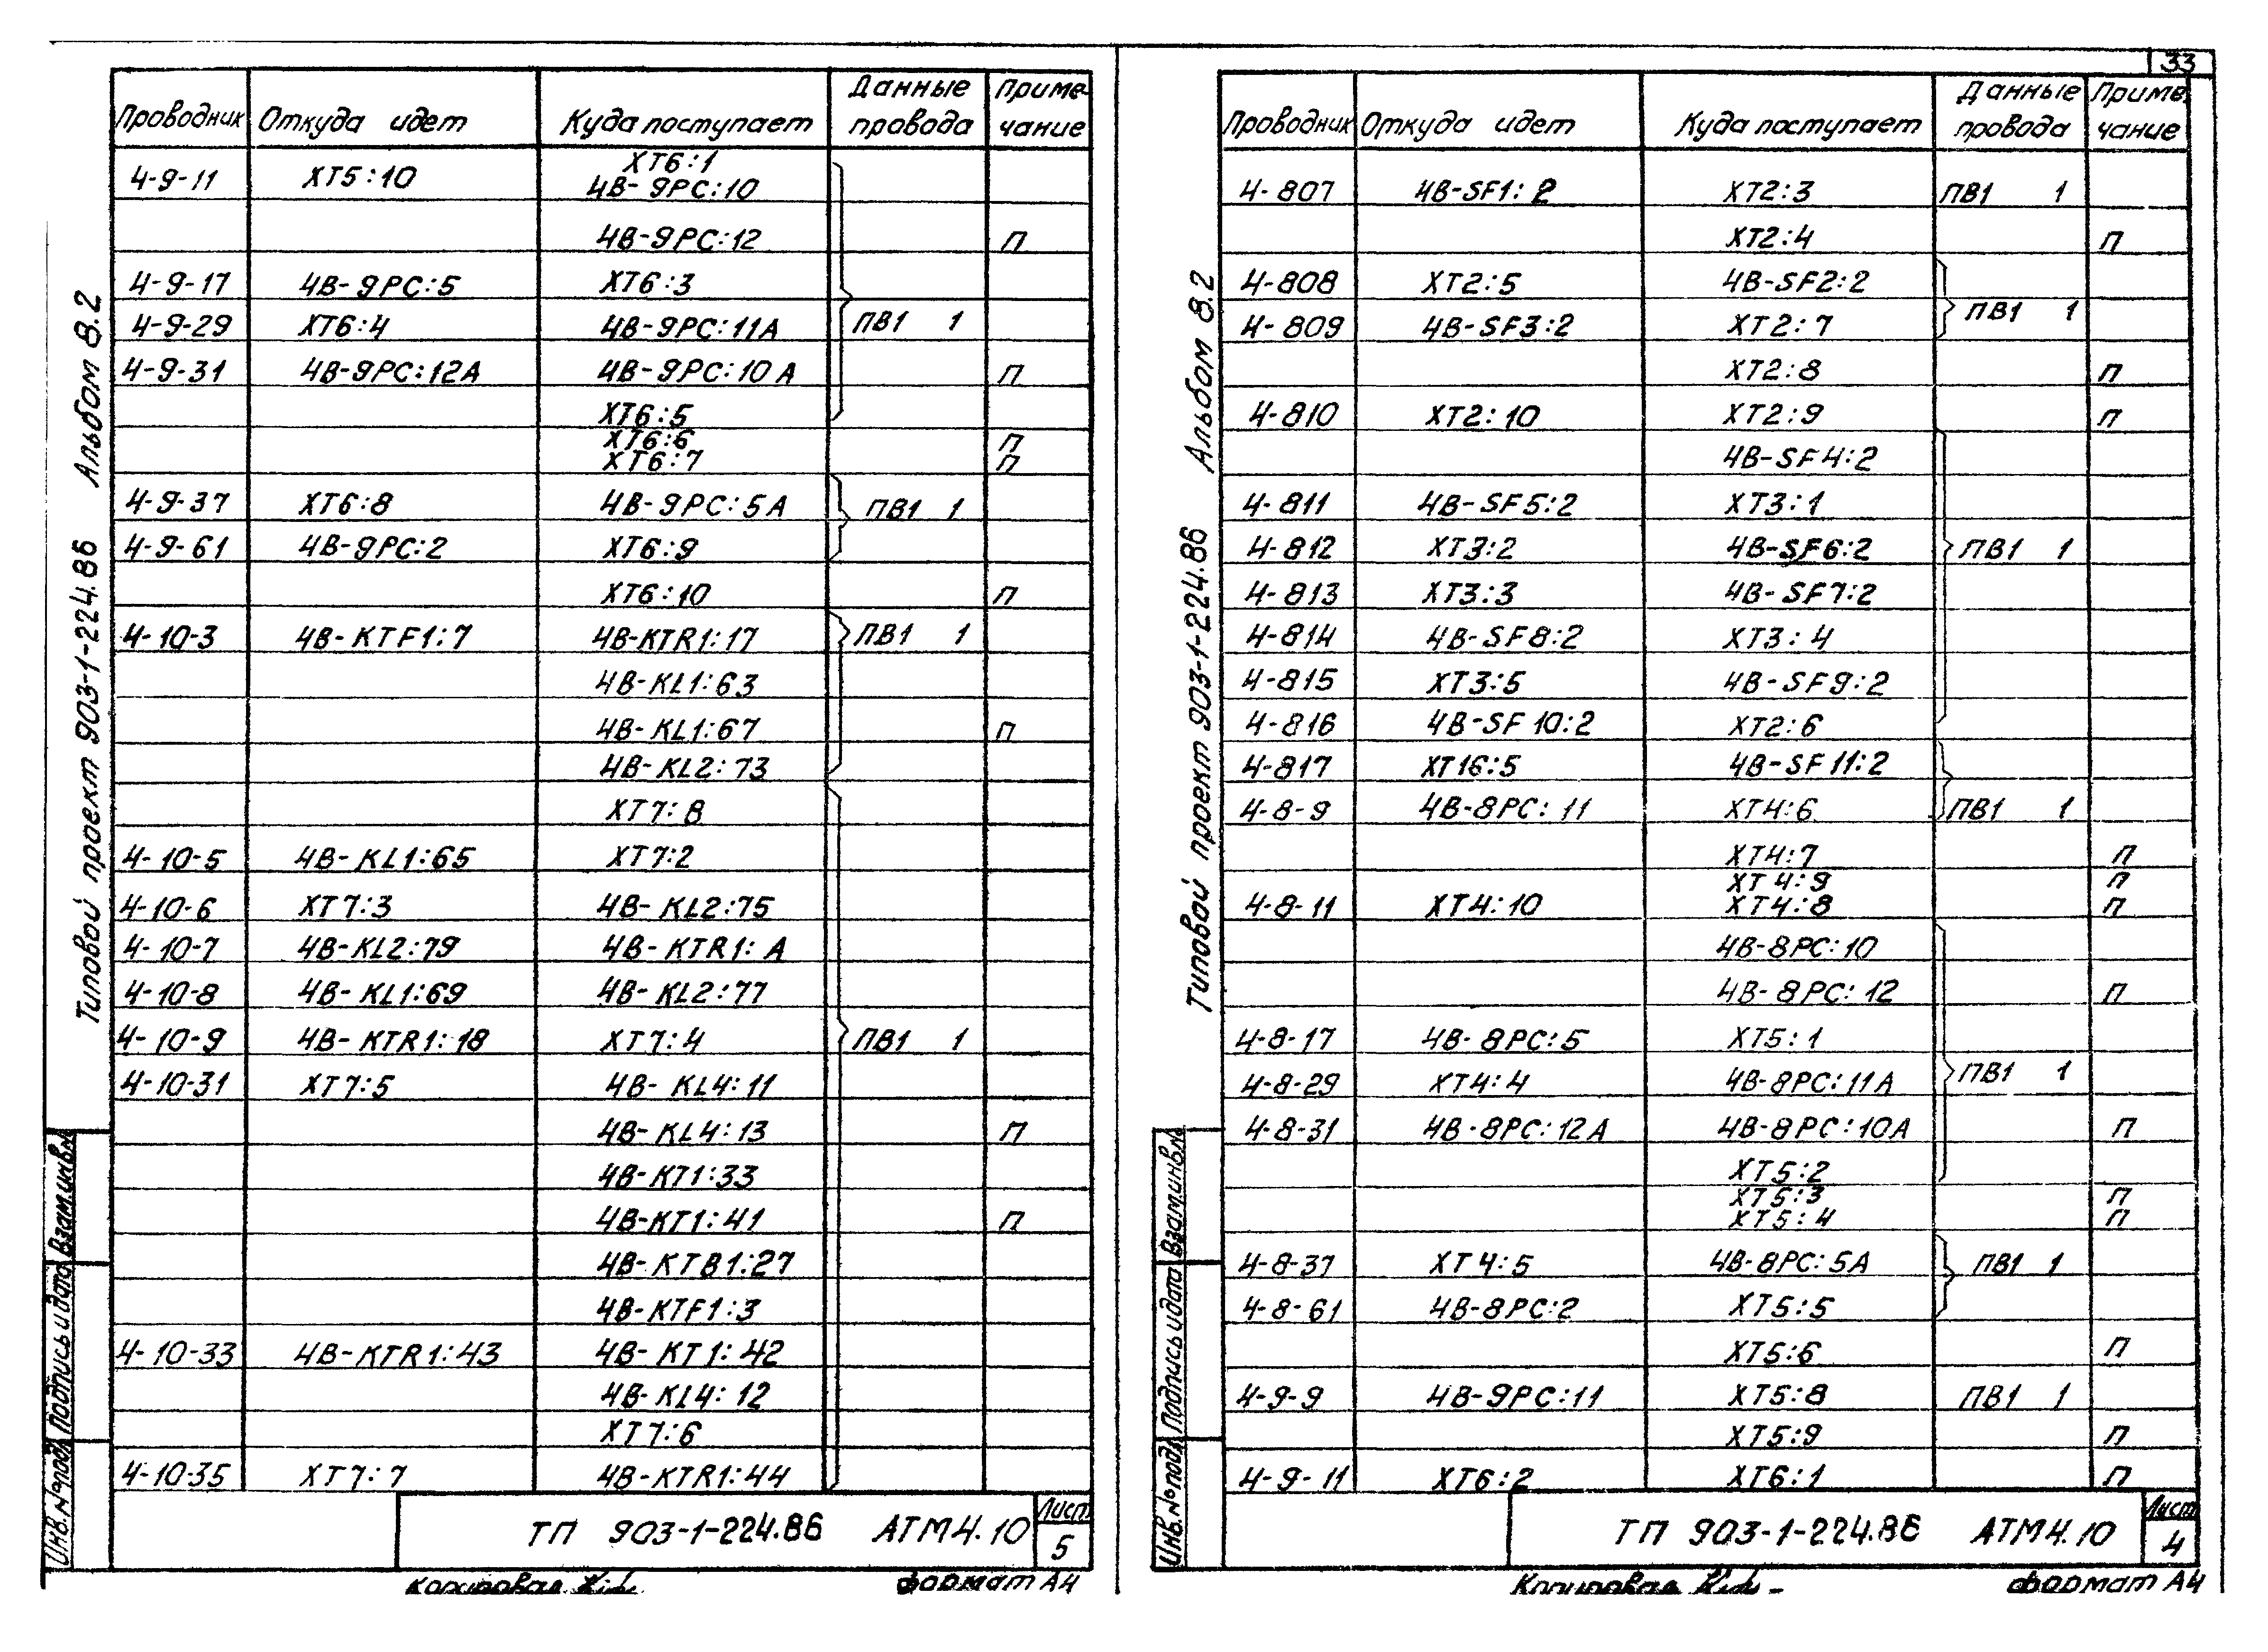 Проводник Откуда идет Куда поступает Данные провода Приме-чание
4-9-11 XT5:10 XT6:1
4В-9РС:10
4В-9РС:12 П
4-9-17 4В-9РС:5 XT6:3
4-9-29 XT6:4 4В-9РС:11А ПВ1 1
4-9-31 4В-9РС:12А 4В-9РС:10А П
XT6:5
XT6:6 П
XT6:7 П
4-9-37 XT6:8 4В-9РС:5А ПВ1 1
4-9-61 4В-9РС:2 XT6:9
XT6:10 П
4-10-3 4В-KTF1:7 4В-KTR1:17 ПВ1 1
4В-KL1:63
4В-KL1:67 П
4В-KL2:73
XT7:8
4-10-5 4В-KL1:65 XT7:2
4-10-6 XT7:3 4В-KL2:75
4-10-7 4В-KL2:79 4В-KTR1:А
4-10-8 4В-KL1:69 4В-KL2:77
4-10-9 4В-KTR1:18 XT7:4 ПВ1 1
4-10-31 XT7:5 4В-KL4:11
4В-KL4:13 П
4В-KT1:33
4В-KT1:41 П
4В-KTB1:27
4В-KTF1:3
4-10-33 4В-KTR1:43 4В-KT1:42
4В-KL4:12
XT7:6
4-10-35 XT7:7 4В-KTR1:44
ТП 903-1-224.86 АТМ4.10
Лист
5
Копировал
формат А4
Типовой проект 903-1-224.86 Альбом 8.2
Инв.№подл. Подпись и дата Взам.инв.№
33
Проводник Откуда идет Куда поступает Данные провода Приме-чание
4-807 4В-SF1:2 XT2:3 ПВ1 1
XT2:4 П
4-808 XT2:5 4В-SF2:2
ПВ1 1
4-809 4В-SF3:2 XT2:7
XT2:8 П
4-810 XT2:10 XT2:9 П
4В-SF4:2
4-811 4В-SF5:2 XT3:1
4-812 XT3:2 4В-SF6:2 ПВ1 1
4-813 XT3:3 4В-SF7:2
4-814 4В-SF8:2 XT3:4
4-815 XT3:5 4В-SF9:2
4-816 4В-SF10:2 XT2:6
4-817 XT16:5 4В-SF11:2
4-8-9 4В-8РС:11 XT4:6 ПВ1 1
XT4:7 П
XT4:9 П
4-8-11 XT4:10 XT4:8 П
4В-8РС:10
4В-8РС:12 П
4-8-17 4В-8РС:5 XT5:1
4-8-29 XT4:4 4В-8РС:11А ПВ1 1
4-8-31 4В-8РС:12А 4В-8РС:10А П
XT5:2
XT5:3 П
XT5:4 П
4-8-37 XT4:5 4В-8РС:5А ПВ1 1
4-8-61 4В-8РС:2 XT5:5
XT5:6 П
4-9-9 4В-9РС:11 XT5:8 ПВ1 1
XT5:9 П
4-9-11 XT6:2 XT6:1 П
ТП 903-1-224.86 АТМ4.10
Лист
4
Копировал
формат А4
Типовой проект 903-1-224.86 Альбом 8.2
Инв.№подл. Подпись и дата Взам.инв.№